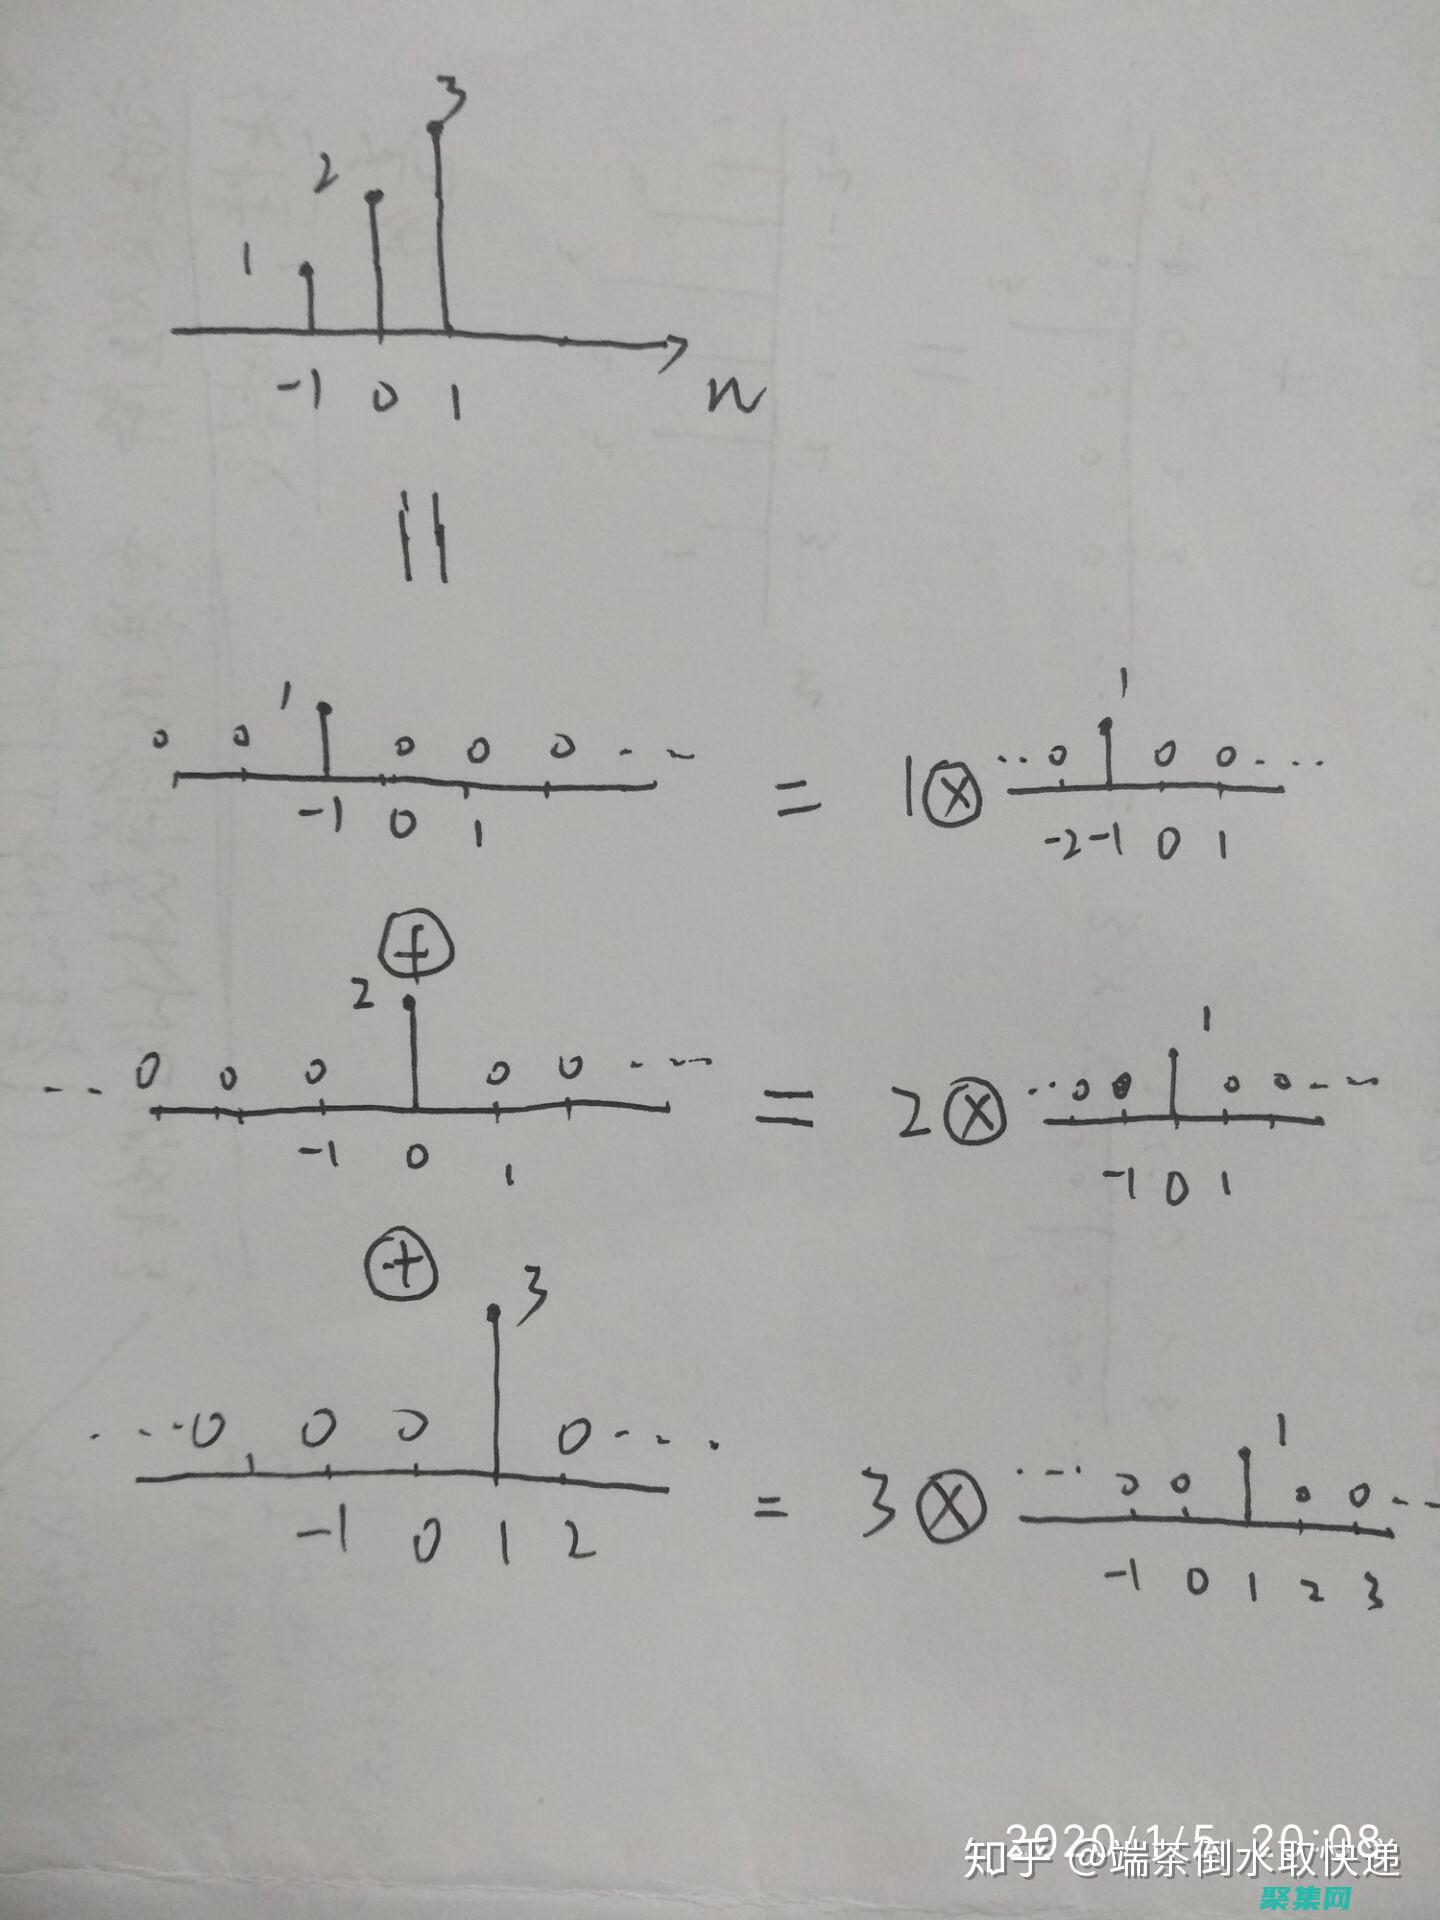 3
2
1
-1 0 1 n
||
0 0 1 0 0 0 - - = 1 ⊗ ..0 1 0 0 ...
-1 0 1 -2 -1 0 1
⊕
-- 0 0 0 2 0 0 --- = 2 ⊗ ..0 0 1 0 0 --
-1 0 1 -1 0 1
⊕
...0 0 0 3 0 ... = 3 ⊗ ...0 0 1 0 0 --
-1 0 1 2 -1 0 1 2 3
2020/1/5 20:08
知乎 @端茶倒水取快递
聚集网